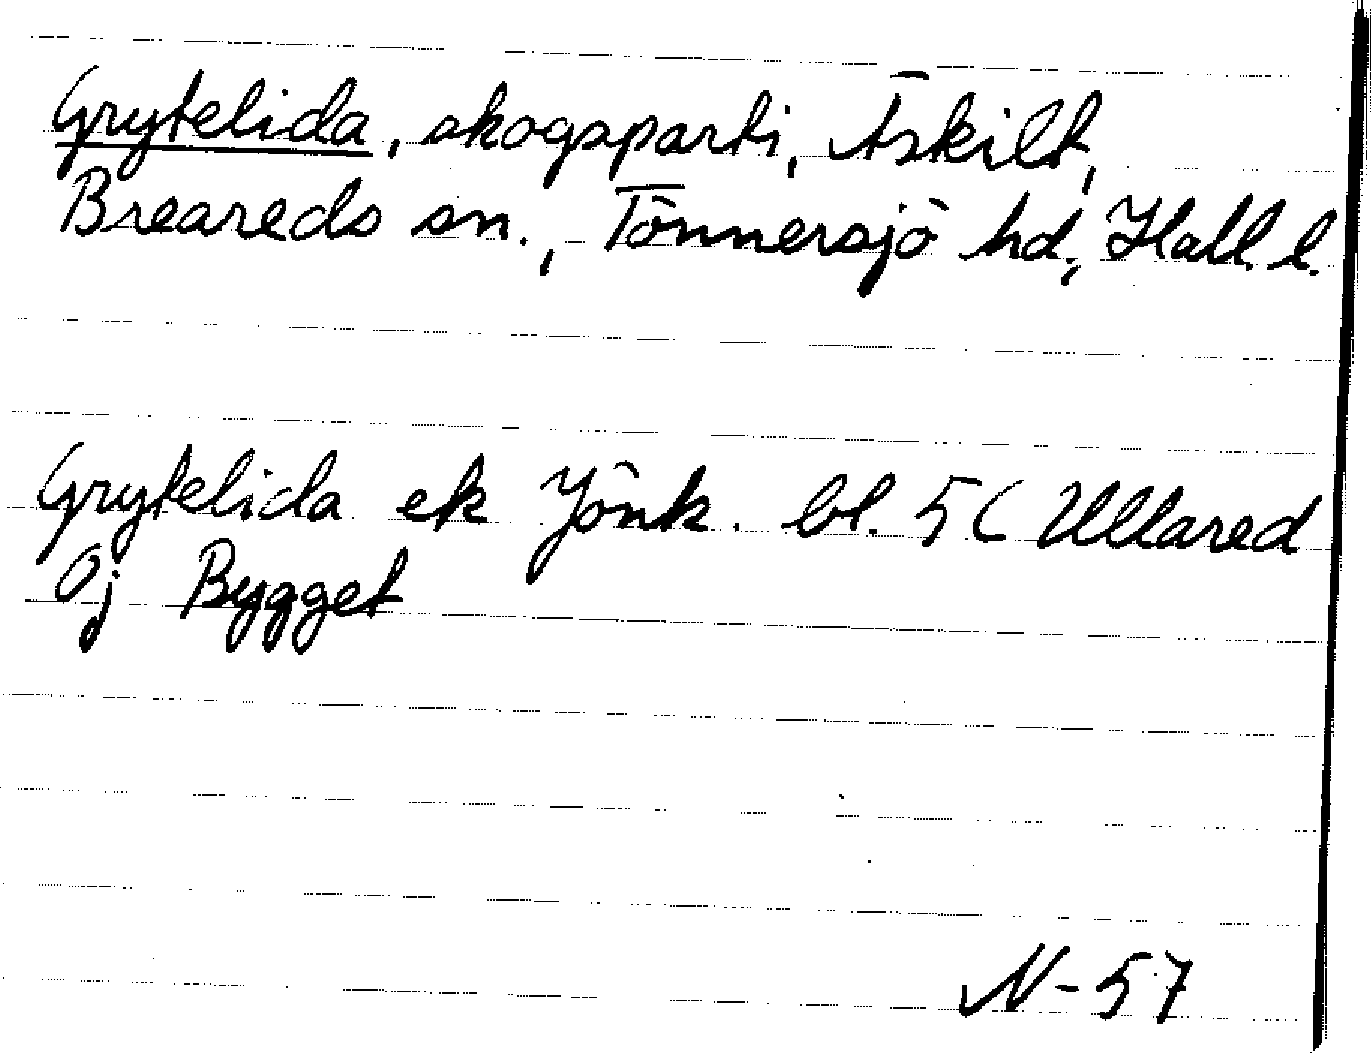 Grytelida, skogsparti, Äskilt,
Breareds sn., Tönnersjö hd, Hall. l.
Grytelida ek Jönk. bl. 5C Ullared
Oj Bygget
N-57